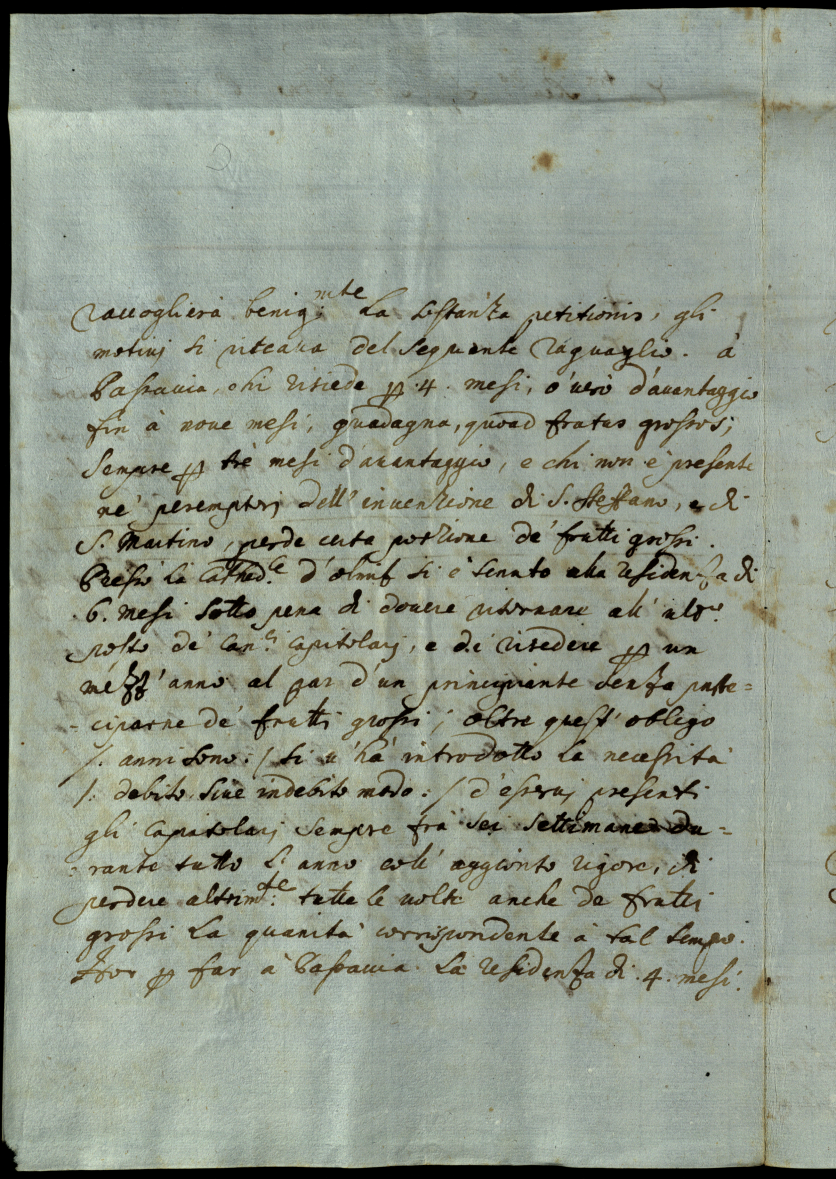 raccoglierà benig:mte La sostanza petitionis, gli
motivj si ricava del seguente raguaglio. à
Passavia, chi risiede p 4. mesi, o'vero d'avantaggio
fin à nove mesi, guadagna, quoad fructus grossos;
sempre p trè mesi d'avantaggio, e chi non è presente
ne' peremptorj dell'invenzione di S. Steffano, e di
S. Martino, perde certa porzione de' frutti grossi.
Presso la Cathed:le d'Olmuz si è tenuto alla residenza di
6. mesi sotto pena di dovere ritornare all'
posto de' Can:ci Capitolarj, e di risedere p un
mezz'anno al par d'un principiante senza parte=
=ciparne de' frutti grossi; oltre quest'obligo
/: anni sono :/ si v'hà introdotto la necessità
/: debito, sive indebito modo :/ d'esservj presenti
gli Capitolarj sempre frà sei settimane du=
=rante tutto l'anno coll'aggionto rigore, di
perdere altrim:te tutte le volte anche de frutti
grossi La quanità corrispondente à tal tempo.
Hor p far à Passavia La residenza di 4. mesi.